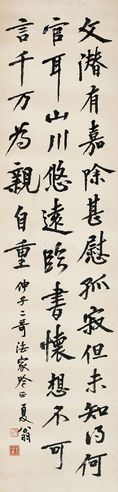 文潜有嘉除甚慰孤寂但未知得何
官耳山川悠遠臨書懷想不可
言千万為親自重
仲子二哥法家桼正夏翁